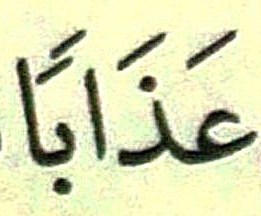 عَذَابًا